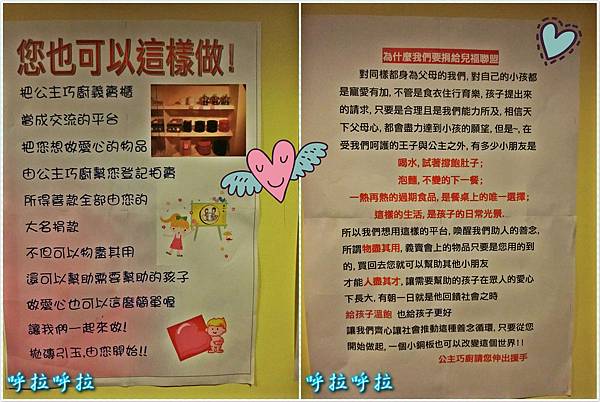 您也可以這樣做!
把公主巧廚義賣櫃
當成交流的平台
把您想做愛心的物品
由公主巧廚幫您登記拍賣
所得善款全部由您的
大名捐款
不但可以物盡其用
還可以幫助需要幫助的孩子
做愛心也可以這麼簡單喔
讓我們一起來做!
拋磚引玉,由您開始!!
呼拉呼拉
為什麼我們要捐給兒福聯盟
對同樣都身為父母的我們, 對自己的小孩都
是寵愛有加, 不管是食衣住行育樂, 孩子提出來
的請求, 只要是合理且是我們能力所及, 相信天
下父母心, 都會盡力達到小孩的願望, 但是~, 在
受我們呵護的王子與公主之外, 有多少小朋友是
喝水, 試著撐飽肚子;
泡麵, 不變的下一餐;
一熱再熱的過期食品, 是餐桌上的唯一選擇;
這樣的生活, 是孩子的日常光景.
所以我們想用這樣的平台, 喚醒我們助人的善念,
所謂物盡其用, 義賣會上的物品只要是您用的到
的, 買回去您就可以幫助其他小朋友
才能人盡其才, 讓需要幫助的孩子在眾人的愛心
下長大, 有朝一日就是他回饋社會之時
給孩子溫飽 也給孩子更好
讓我們齊心讓社會推動這種善念循環, 只要從您
開始做起, 一個小銅板也可以改變這個世界!!
公主巧廚請您伸出援手
呼拉呼拉